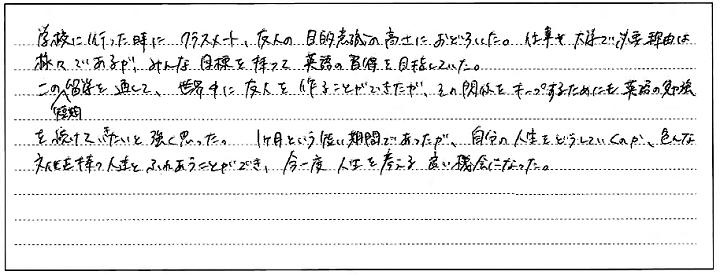 学校に行った時に クラスメート、友人の 目的意識の高さに おどろいた。 仕事や 大学で必要 理由は
様々であるが、みんな 目標を 持って 英語の習得を目指していた。
この留学を通じて、世界中に 友人を 作ることができたが、その関係を キープするためにも 英語の勉強
短期
を続けていきたいと 強く思った。 1ヶ月という短い期間であったが、自分の 人生をどうしていくのか、色んな
文化を持つ人達と ふれあうことができ、今一度 人生を考える 良い機会になった。